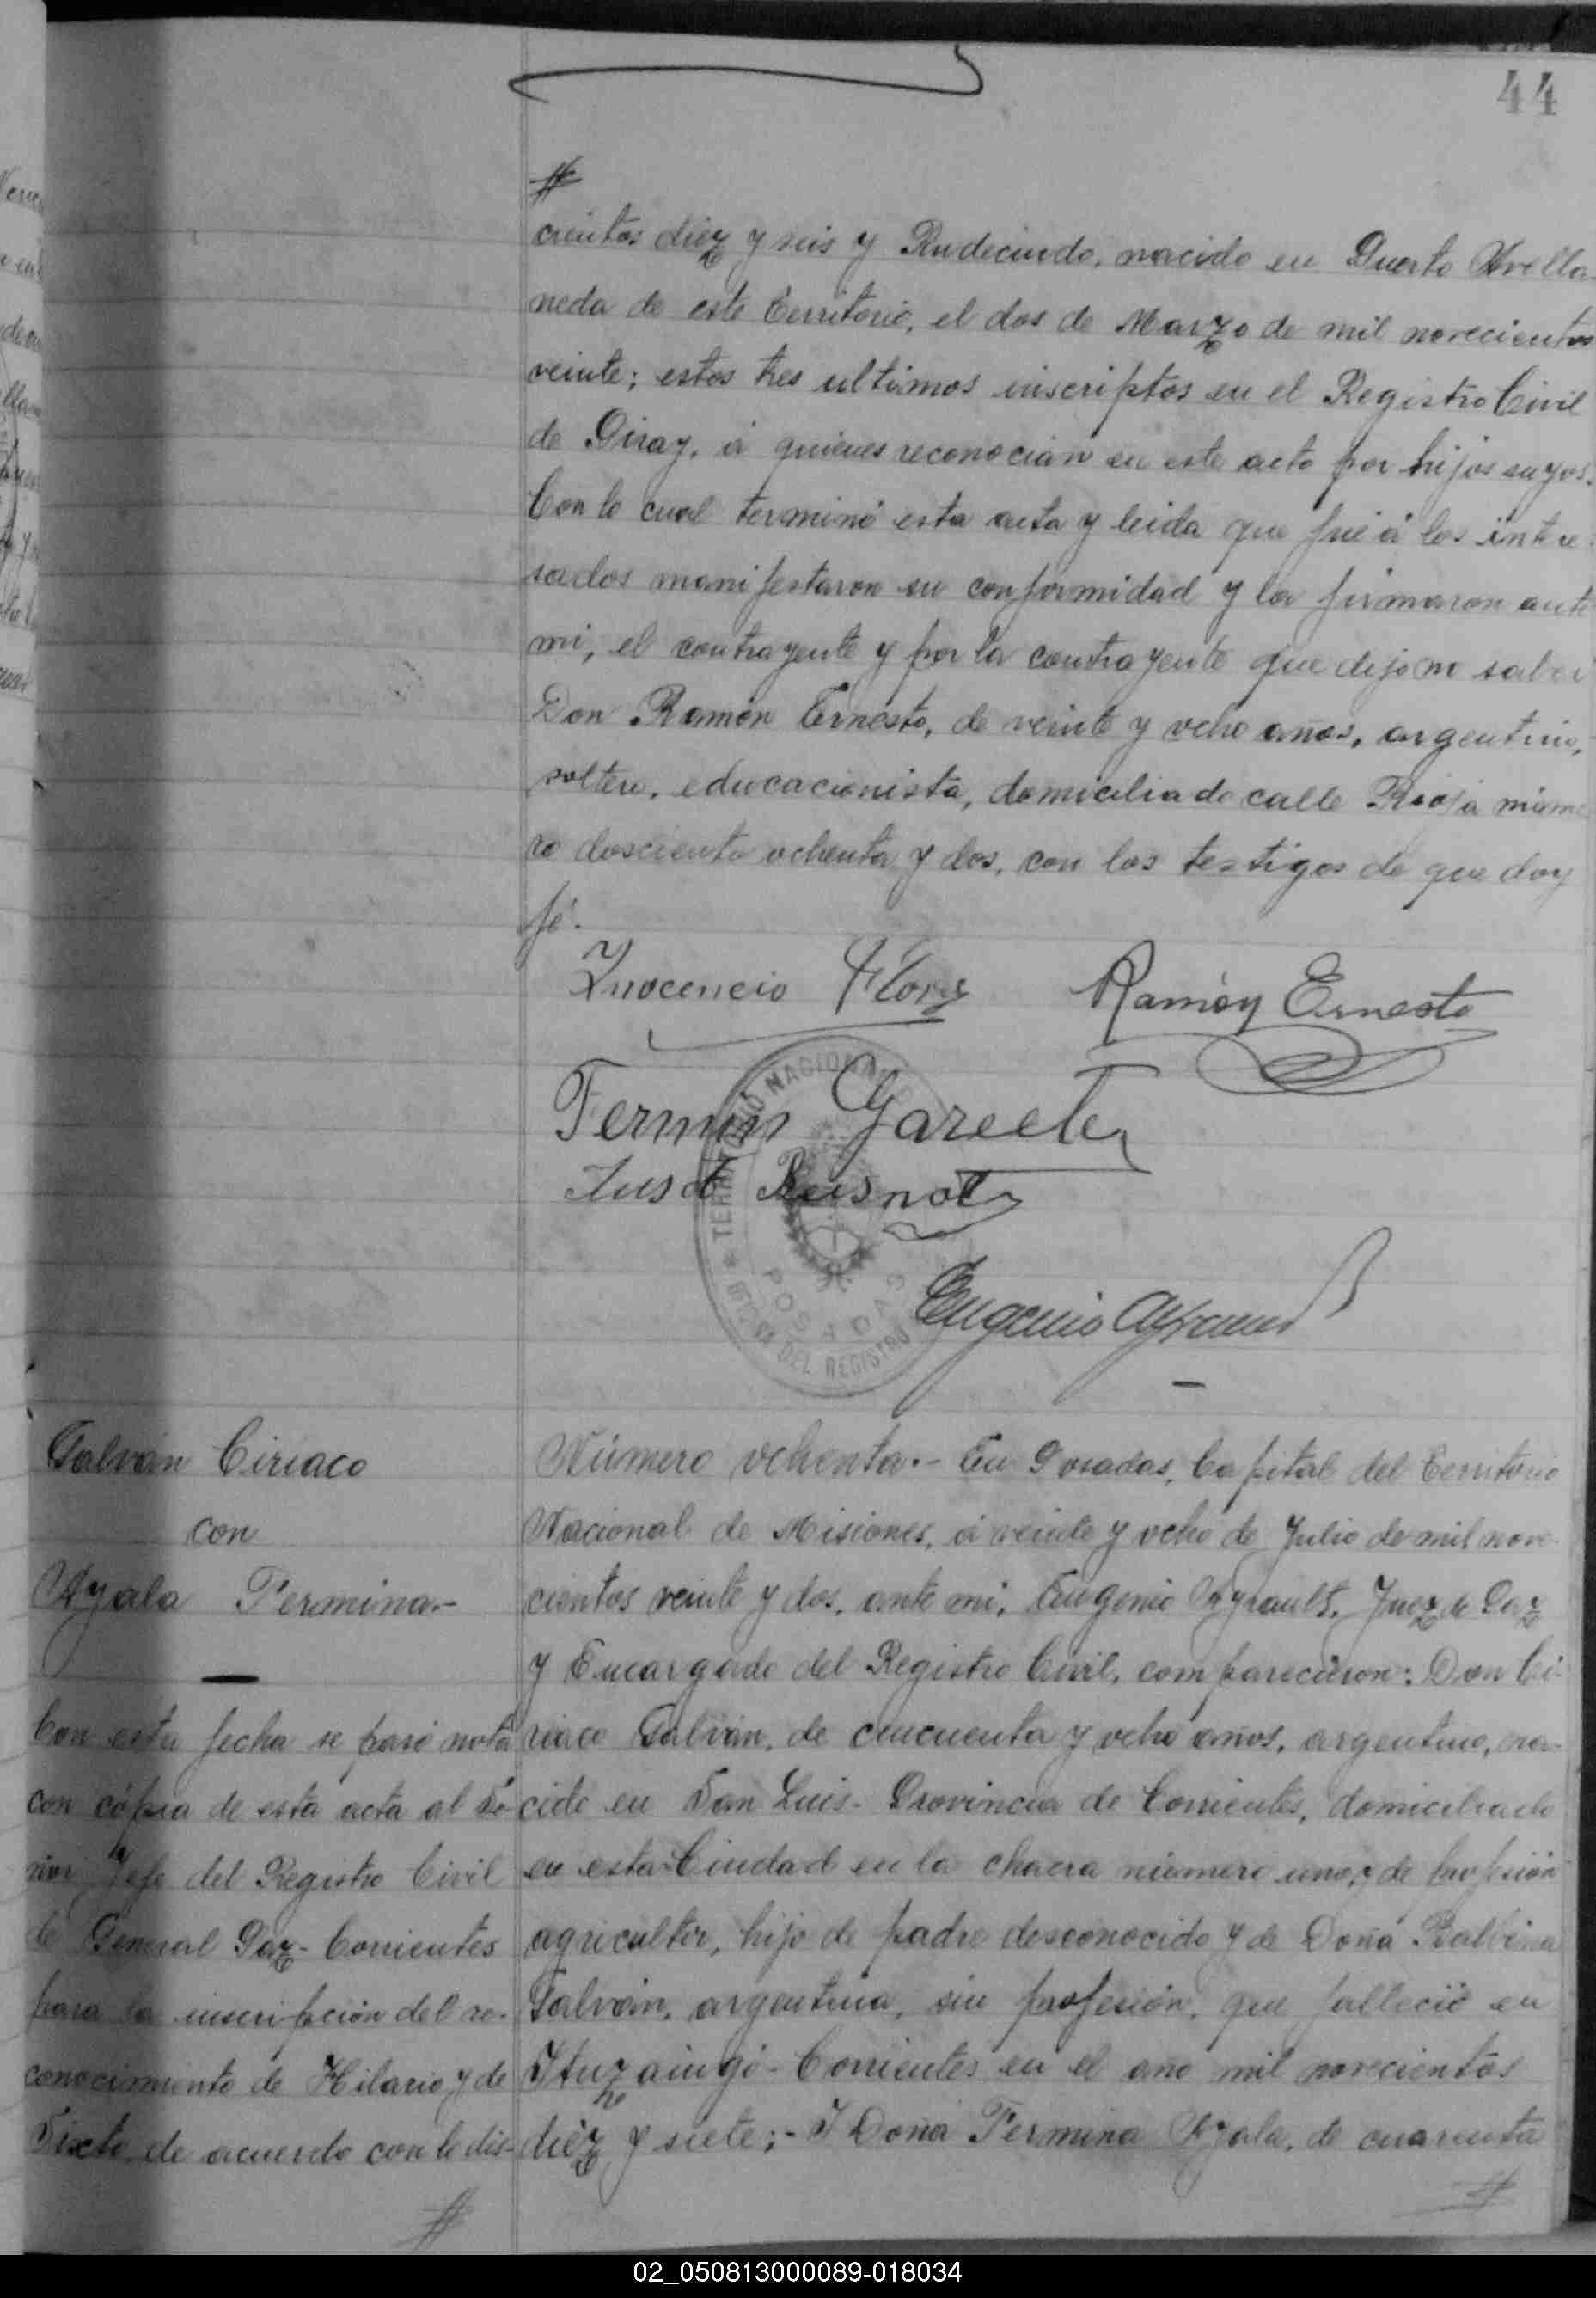 44
#
cientos diez y seis y Rudecindo, nacido en Puerto Avella
neda de este Territorio, el dos de Marzo de mil novecientos
veinte; estos tres ultimos inscriptos en el Registro Civil
de Piray, á quienes reconocian en este acto por hijos suyos.
Con lo cual terminó esta acta y leida que fué á los intere
sados manifestaron su conformidad y la firmaron ante
mi, el contrayente y por la contrayente que dijo no saber
Don Ramón Ernesto, de veinte y ocho años, argentino,
soltero, educacionista, domiciliado calle Rioja núme
ro doscientos ochenta y dos, con los testigos de que doy
fé.
Inocencio Flores Ramón Ernesto
Fermin Gareete
Justo
TERRITORIO NACIONAL
POSADAS
OFICINA DEL REGISTRO
Eugenio Ayrault
Galván Ciriaco
con
Ayala Fermina.-
Con esta fecha se pasó nota
con cópia de esta acta al Se-
ñor Jefe del Registro Civil
de General Paz - Corrientes
para la inscripción del re-
conocimiento de Hilario y de
Sixto de acuerdo con lo dis-
#
Número ochenta.- En Posadas, Capital del Territorio
Nacional de Misiones, á veinte y ocho de Julio de mil nove-
cientos veinte y dos, ante mi, Eugenio Ayrault, Juez de Paz
y Encargado del Registro Civil, comparecieron: Don Ci-
riaco Galván, de cincuenta y ocho años, argentino, na-
cido en San Luis - Provincia de Corrientes, domiciliado
en esta Ciudad en la chacra número uno, y de profesión
agricultor, hijo de padre desconocido y de Doña Balbina
Galván, argentina, sin profesión, que falleció en
Ituzaingó - Corrientes en el año mil novecientos
diez y siete; - Y Doña Fermina Ayala, de cuarenta
#
02_050813000089-018034